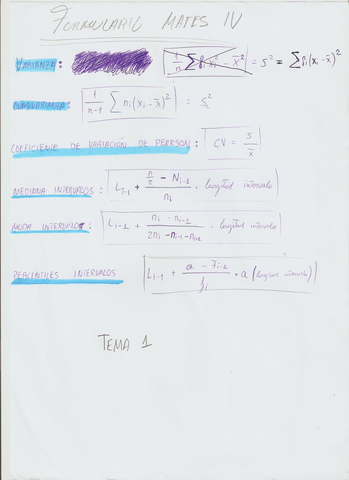 FORMULARIO MATES IV
VARIANZA: 1/n Σ fi xi² - x̄² = S² = Σ fi (xi - x̄)²
CUASIVARIANZA: 1/n-1 Σ ni (xi - x̄)² = S²
COEFICIENTE DE VARIACIÓN DE PEARSON: CV = S/x̄
MEDIANA INTERVALOS: Li-1 + (n/2 - Ni-1)/ni · longitud intervalo
MODA INTERVALOS: Li-1 + (ni - ni-1)/(2ni - ni-1 - ni+1) · longitud intervalo
PERCENTILES INTERVALOS Li-1 + (a - Fi-1)/fi · a (longitud intervalo)
TEMA 1